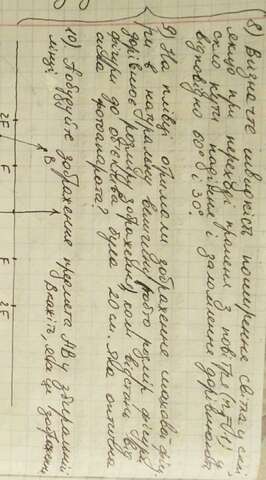 8) Визначте швидкість поширення світла у склі,
якщо при переході променя з повітря (n=1) у
скло кути падіння і заломлення дорівнюють
відповідно 60° і 30°.
9) На плівці отримали зображення шахової фігу-
ри в натуральну величину (тобто розмір фігури
дорівнює розміру зображення), коли відстань від
фігури до об'єктива була 20 см. Яка оптична
сила фотоапарата?
10) Побудуйте зображення предмета AB у збиральній
лінзі. Вкажіть, яке це зображення
B
2F F F 2F